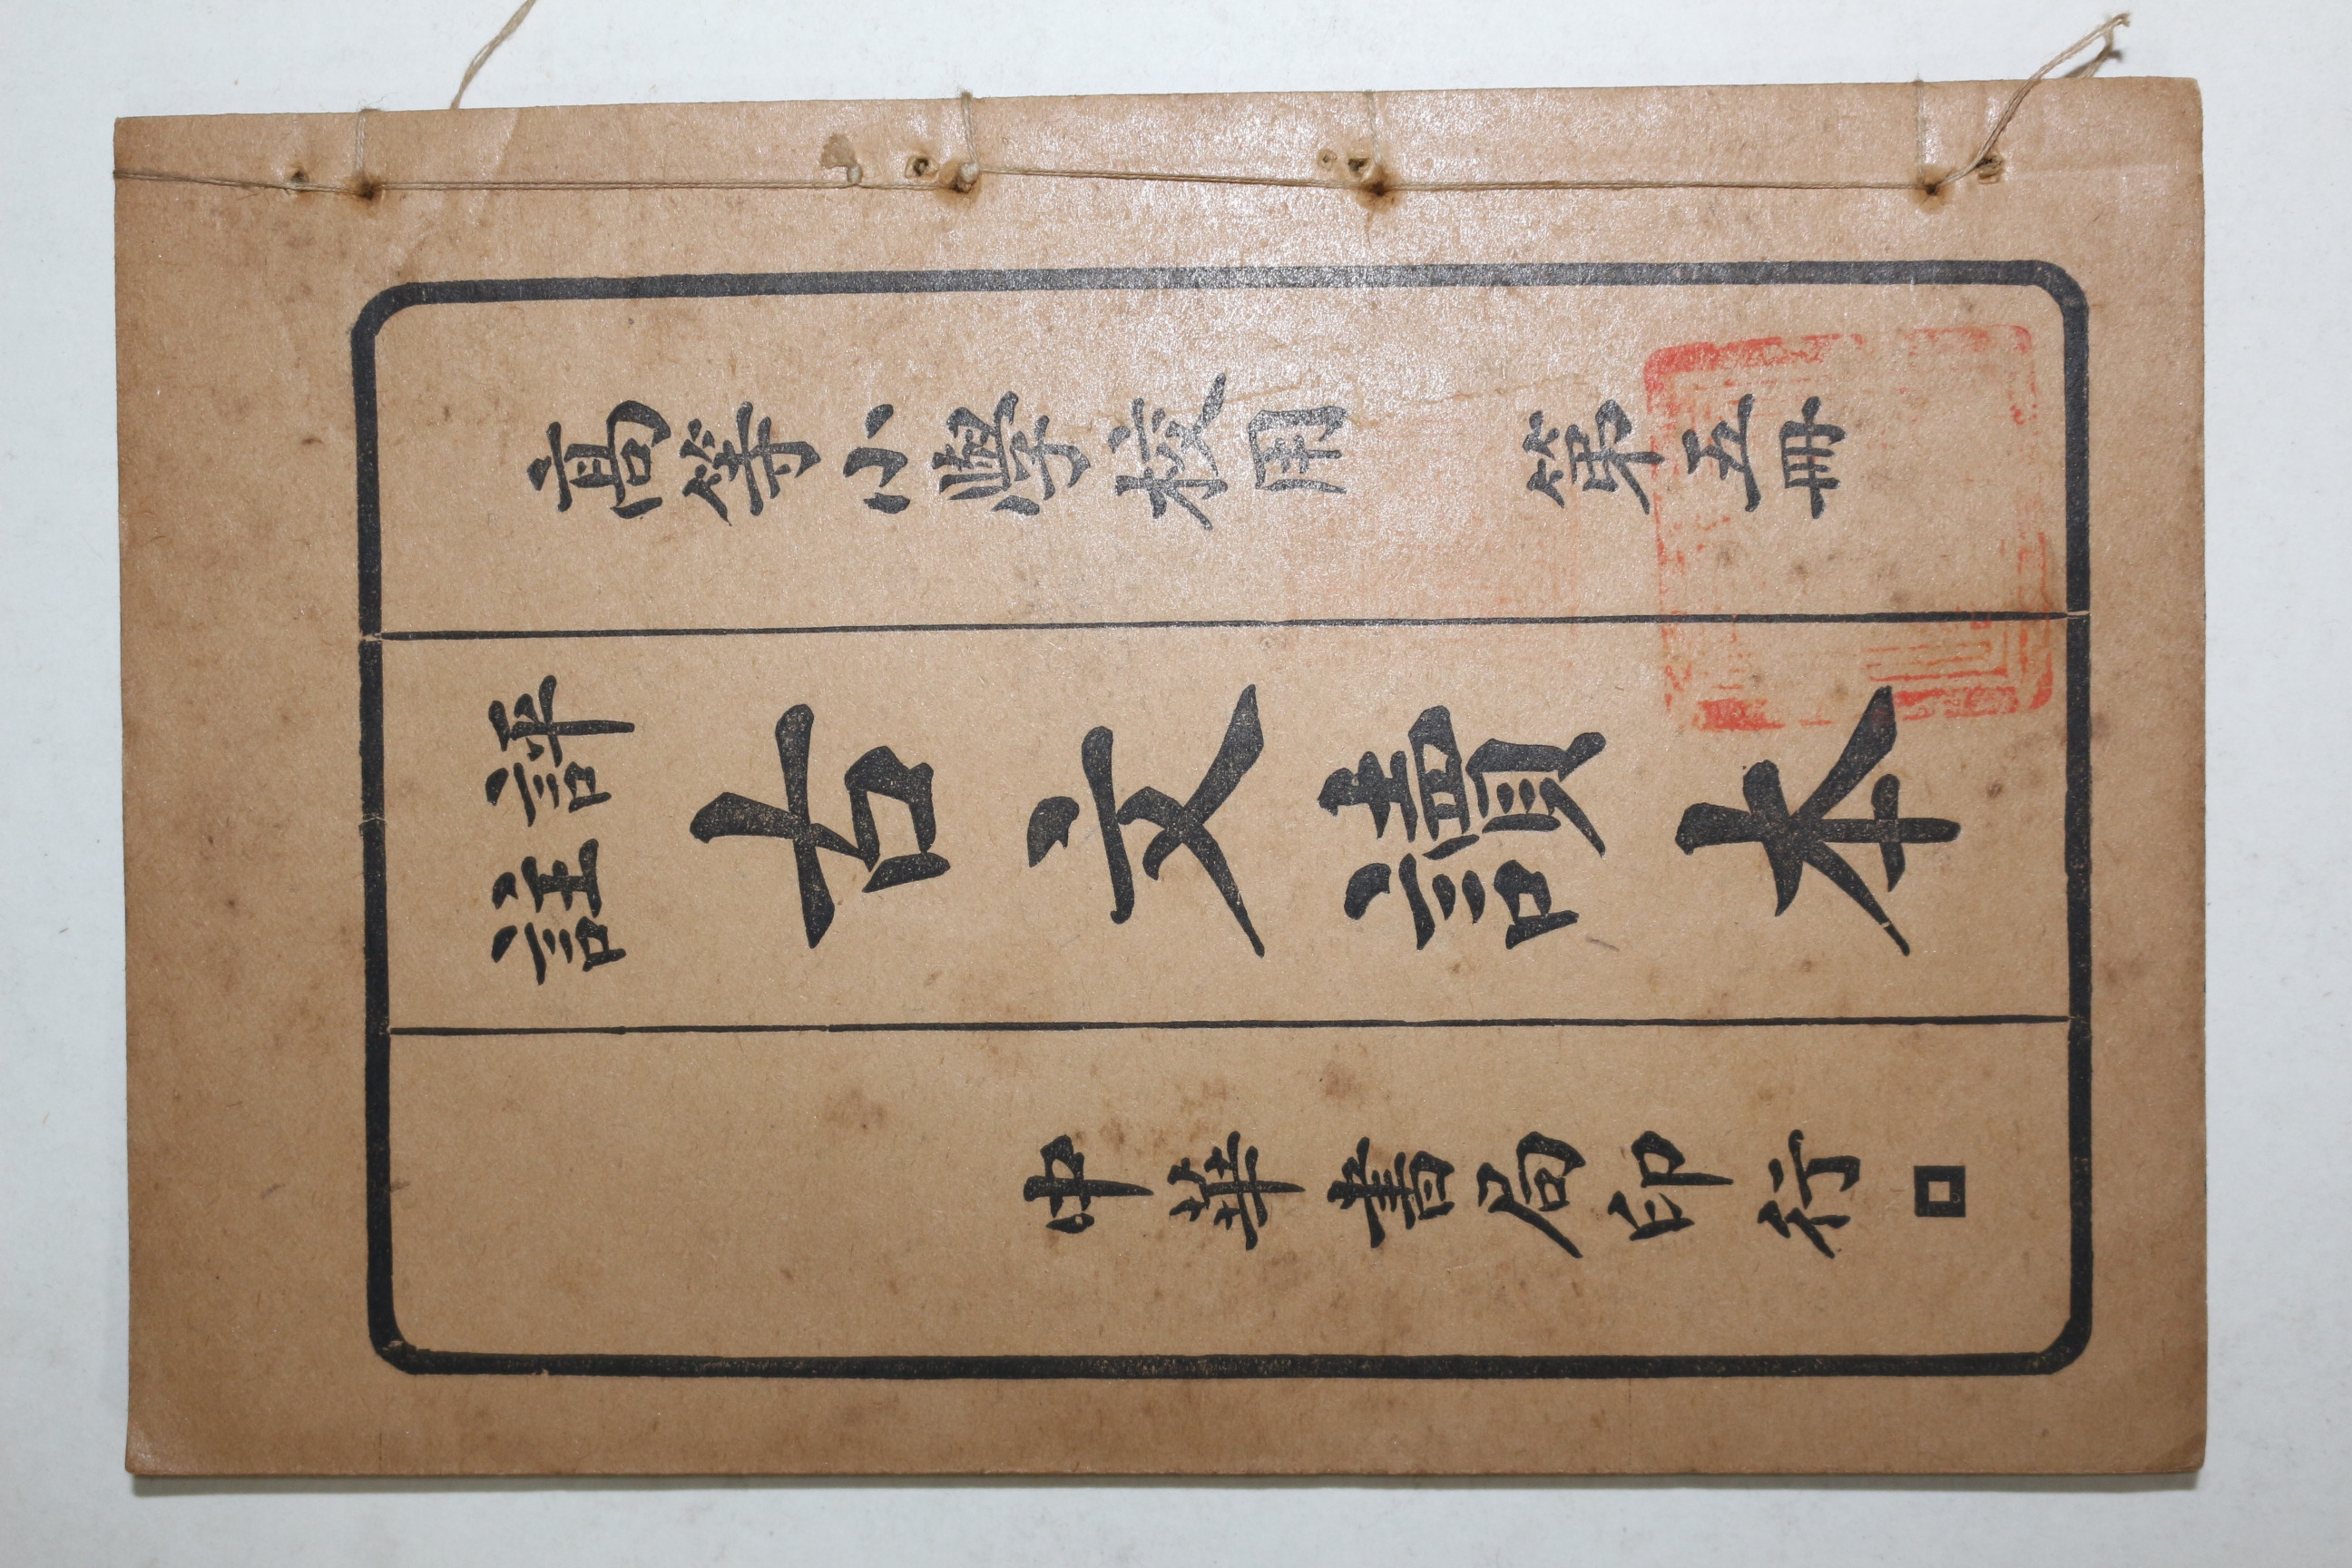 高等小學校用 第五冊
評註古文讀本
中華書局印行